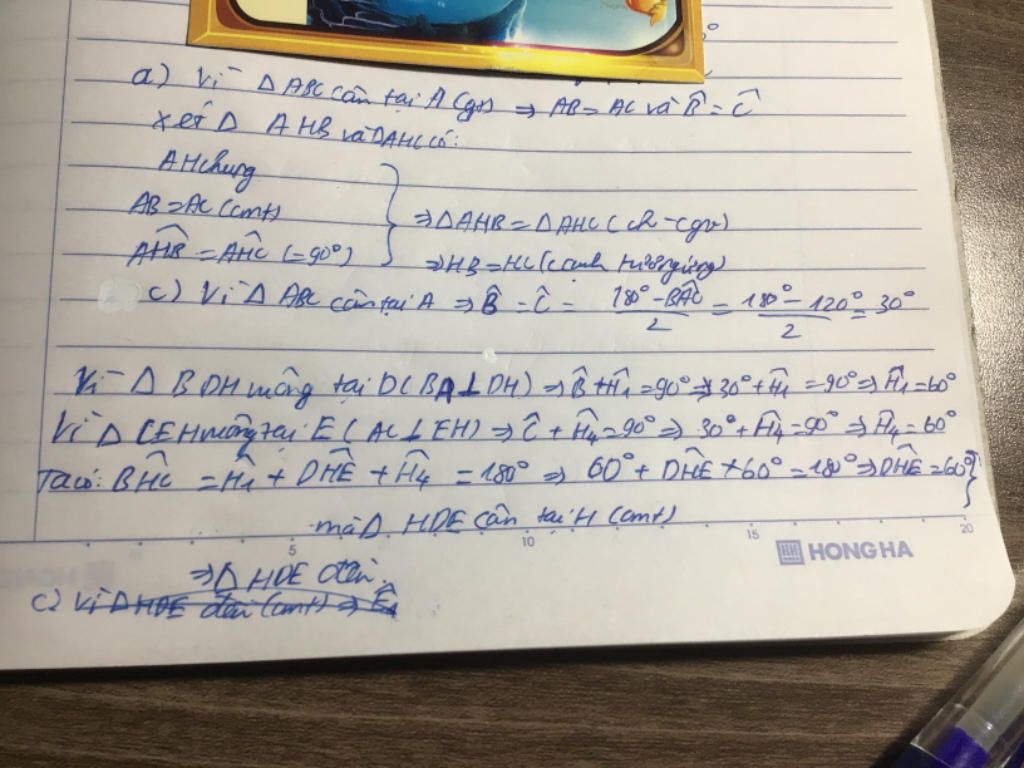 a) Vì Δ ABC cân tại A (gt) ⇒ AB = AC và B̂ = Ĉ
xét Δ AHB và ΔAHC có:
AH chung
AB = AC (cmt)
⇒ Δ AHB = Δ AHC (ch - cgv)
AHB̂ = AHĈ (= 90°)
⇒ HB = HC (cạnh tương ứng)
c) Vì Δ ABC cân tại A ⇒ B̂ = Ĉ = (180° - BAĈ)/2 = (180° - 120°)/2 = 30°
Vì Δ BDH vuông tại D (BA ⊥ DH) ⇒ B̂ + Ĥ1 = 90° ⇒ 30° + Ĥ1 = 90° ⇒ Ĥ1 = 60°
Vì Δ CEH vuông tại E (AC ⊥ EH) ⇒ Ĉ + Ĥ4 = 90° ⇒ 30° + Ĥ4 = 90° ⇒ Ĥ4 = 60°
Ta có: BHĈ = Ĥ1 + DHÊ + Ĥ4 = 180° ⇒ 60° + DHÊ + 60° = 180° ⇒ DHÊ = 60°
mà Δ HDE cân tại H (cmt)
5 10 15 20
HONG HA
⇒ Δ HDE đều.
c) Vì Δ HDE đều (cmt) ⇒ Ê1